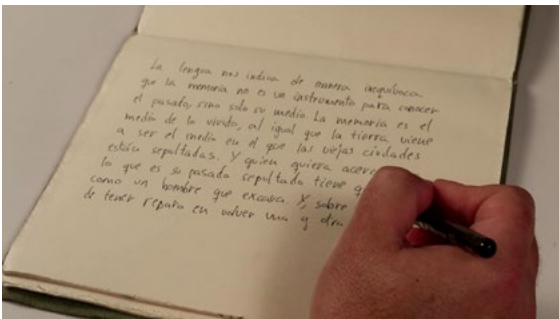 La lengua nos indica de manera inequívoca
que la memoria no es un instrumento para conocer
el pasado, sino solo su medio. La memoria es el
medio de lo vivido, al igual que la tierra viene
a ser el medio en el que las viejas ciudades
están sepultadas. Y quien quiera acer
lo que es su pasado sepultado tiene q
como un hombre que excava. Y, sobre
de tener reparo en volver una y otra